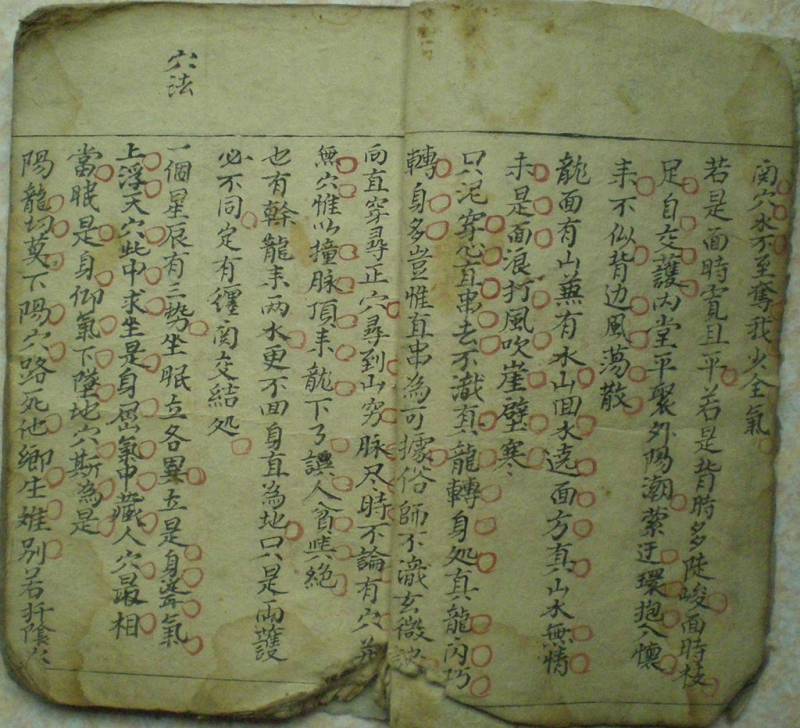 関穴水不至奪我少全氣
若是面時寬且平若是背時多陡峻面時枝
足自交護内堂平聚外陽潮縈迂環抱入懷
耒不似背边風蕩散
龍面有山兼有水山回水遶面方真山水無情
未是面浪打風吹崖壁寒
只泥穿心直串去不識真龍轉身処真龍内巧
轉身多豈惟直串為可據俗師不識玄微
向直穿尋正穴尋到山窮脉尽時不論有穴
無穴惟以撞脉頂耒龍下了誤人貧與絕
也有幹龍耒兩水更不回身直為地只是兩護
必不同定有纏関交結処
穴法
一個星辰有三勢坐眠立各異立是身聳氣
上浮天穴此中求坐是身屈氣中藏人穴最相
當眠是身仰氣下墜地穴斯為是
陽龍切莫下陽穴路死他鄉生離別若扦陰